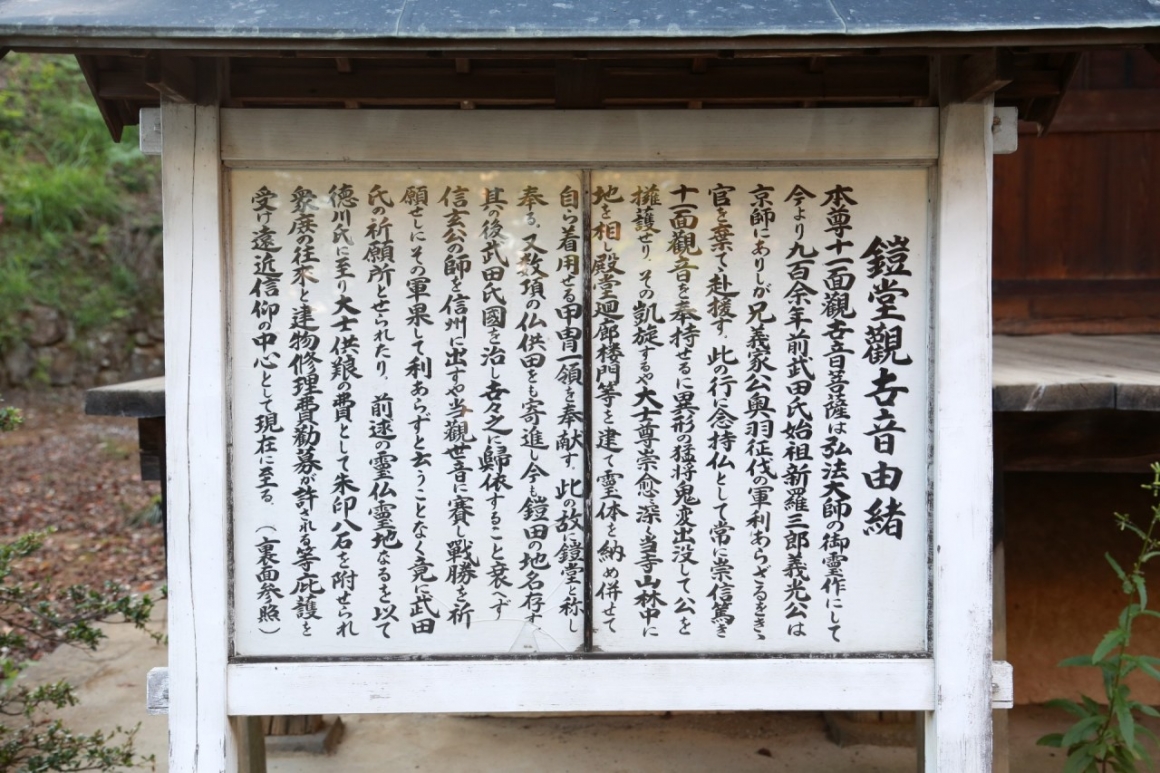 鎧堂觀世音由緒
本尊十一面觀世音菩薩は弘法大師の御霊作にして
今より九百余年前武田氏始祖新羅三郎義光公は
京師にありしが兄義家公奥羽征伐の軍利あらざるをきゝ
官を棄てゝ赴援す。此の行に念持仏として常に崇信篤き
十一面觀音を奉持せるに異形の猛将鬼変出没して、公を
擁護せり。その凱旋するや大士尊崇愈々深く当寺山林中に
地を相し殿堂廻廊楼門等を建て霊体を納め併せて
自ら着用せる甲冑一領を奉献す。此の故に鎧堂と称し
奉る。又数項の仏供田をも寄進し今も鎧田の地名存す
其の後武田氏國を治し世々之に歸依すること衰へず
信玄公の師を信州に出すや当觀世音に賽し戦勝を祈
願せしにその軍果して利あらずと云うことなく竟に武田
氏の祈願所とせられたり。前述の霊仏霊地なるを以て
徳川氏に至り大士供銀の費として朱印八石を附せられ
衆庶の往来と建物修理費勧募が許される等庇護を
受け遠近信仰の中心として現在に至る。（裏面参照）